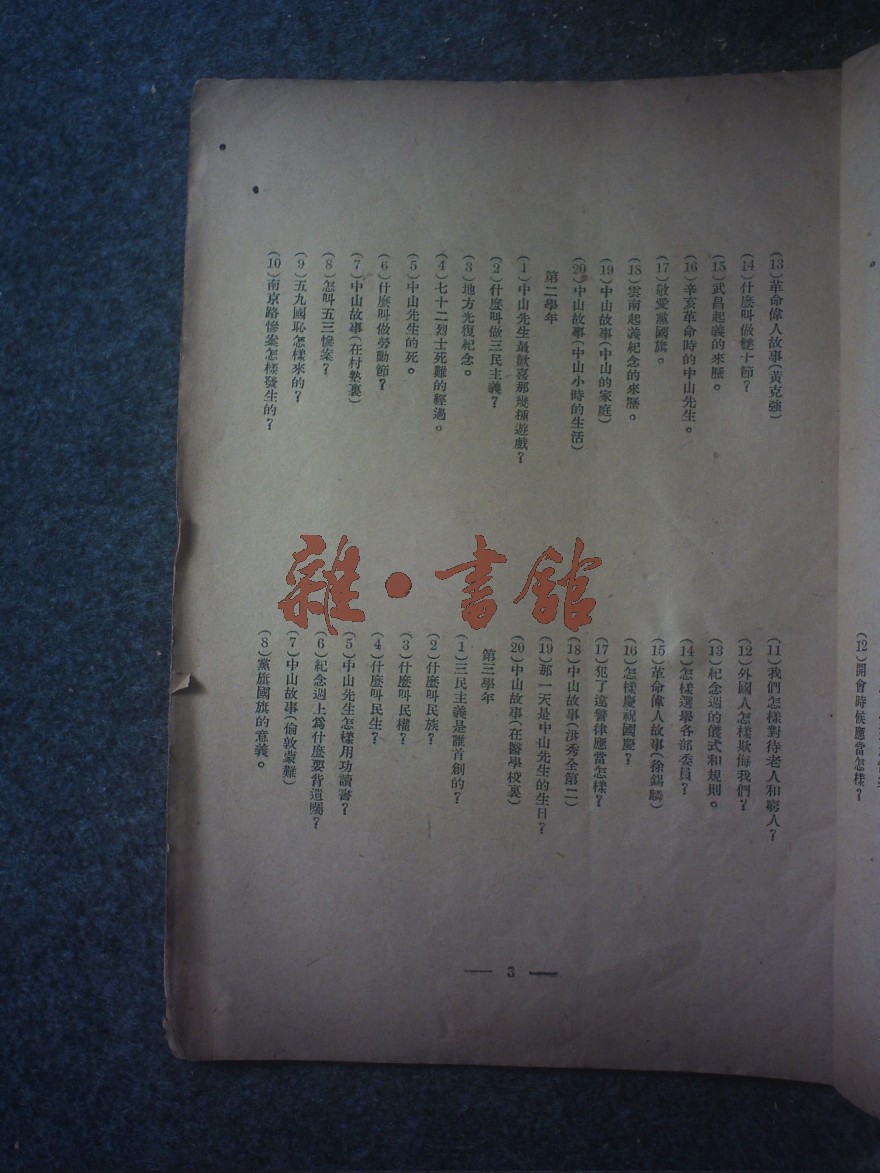 (13)革命偉人故事(黃克強)
(14)什麼叫做雙十節?
(15)武昌起義的來歷。
(16)辛亥革命時的中山先生。
(17)敬愛黨國旗。
(18)雲南起義紀念的來歷。
(19)中山故事(中山的家庭)
(20)中山故事(中山小時的生活)
第二學年
(1)中山先生最歡喜那幾種遊戲?
(2)什麼叫做三民主義?
(3)地方光復紀念。
(4)七十二烈士死難的經過。
(5)中山先生的死。
(6)什麼叫做勞動節?
(7)中山故事(在村塾裏)
(8)怎叫五三慘案?
(9)五九國恥怎樣來的?
(10)南京路慘案怎樣發生的?
(11)我們怎樣對待老人和窮人?
(12)外國人怎樣欺侮我們?
(13)紀念週的儀式和規則。
(14)怎樣選舉各部委員?
(15)革命偉人故事(徐錫麟)
(16)怎樣慶祝國慶?
(17)犯了違警律應當怎樣?
(18)中山故事(洪秀全第二)
(19)那一天是中山先生的生日?
(20)中山故事(在醫學校裏)
第三學年
(1)三民主義是誰首創的?
(2)什麼叫民族?
(3)什麼叫民權?
(4)什麼叫民生?
(5)中山先生怎樣用功讀書?
(6)紀念週上爲什麼要背遺囑?
(7)中山故事(倫敦蒙難)
(8)黨旗國旗的意義。
— 3 —
(12)開會時候應當怎樣?
雜·書館